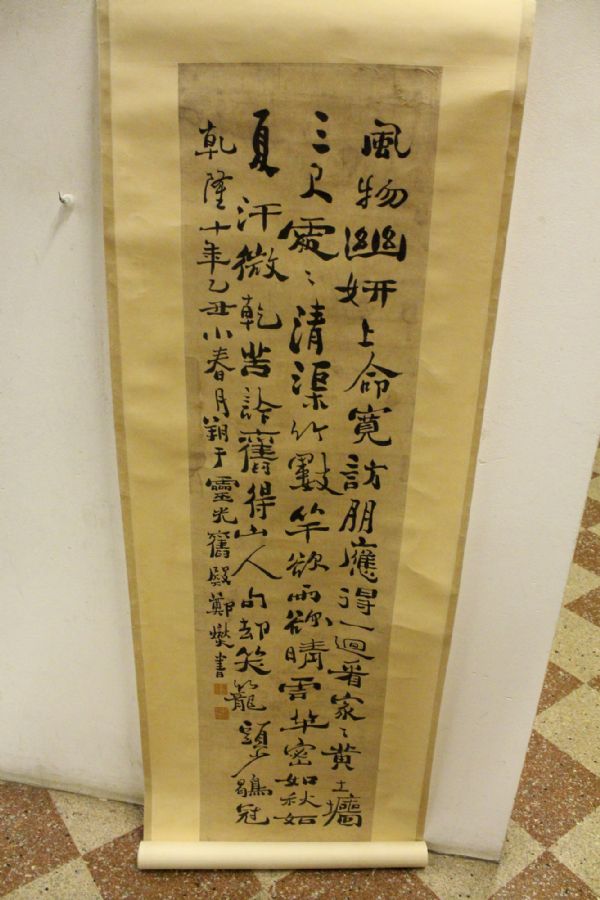 風物幽妍上命寬訪朋應得一迴看家〻黃土牆
三尺處〻清渠竹數竿欲雨欲晴雲葉密如秋如
夏汗微乾苦訡舊得山人句却笑籠頭少鶡冠
乾隆十年乙丑小春月朔于靈光舊殿鄭燮書